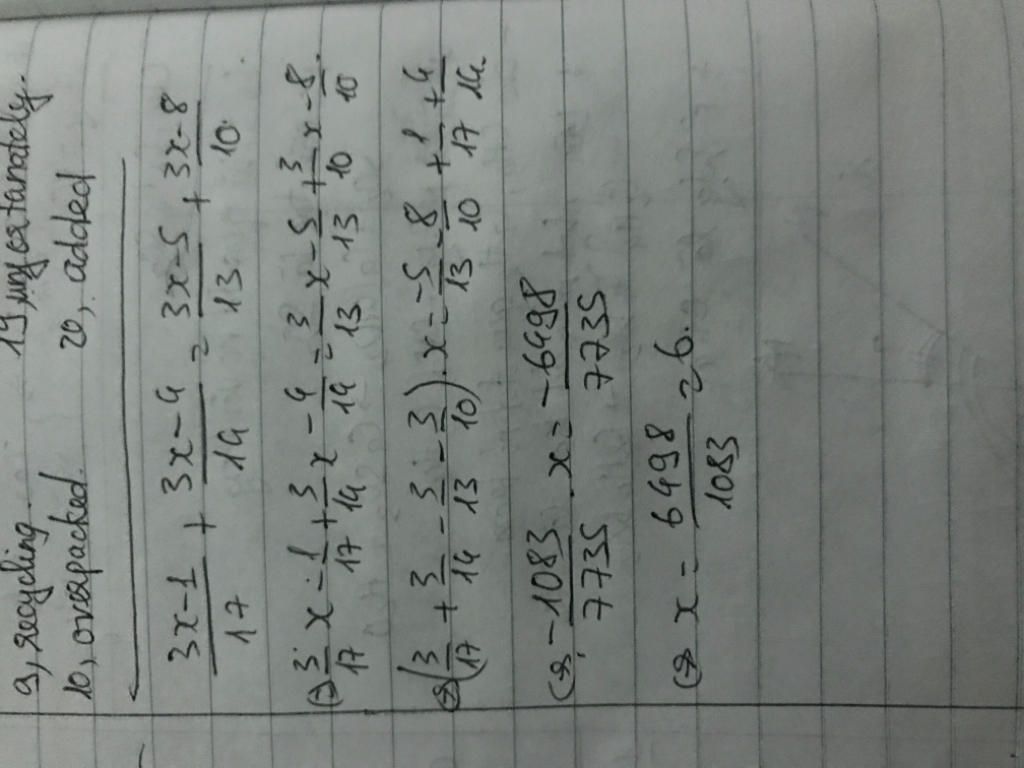 9, recycling. 19, unfortanately.
10, overpacked. 20, added
3x-1/17 + 3x-4/14 = 3x-5/13 + 3x-8/10.
(=) 3/17 x - 1/17 + 3/14 x - 4/14 = 3/13 x - 5/13 + 3/10 x - 8/10.
(=) (3/17 + 3/14 - 3/13 - 3/10).x = -5/13 - 8/10 + 1/17 + 4/14
(=) -1083/7735 . x = -6498/7735
(=) x = 6498/1083 = 6.